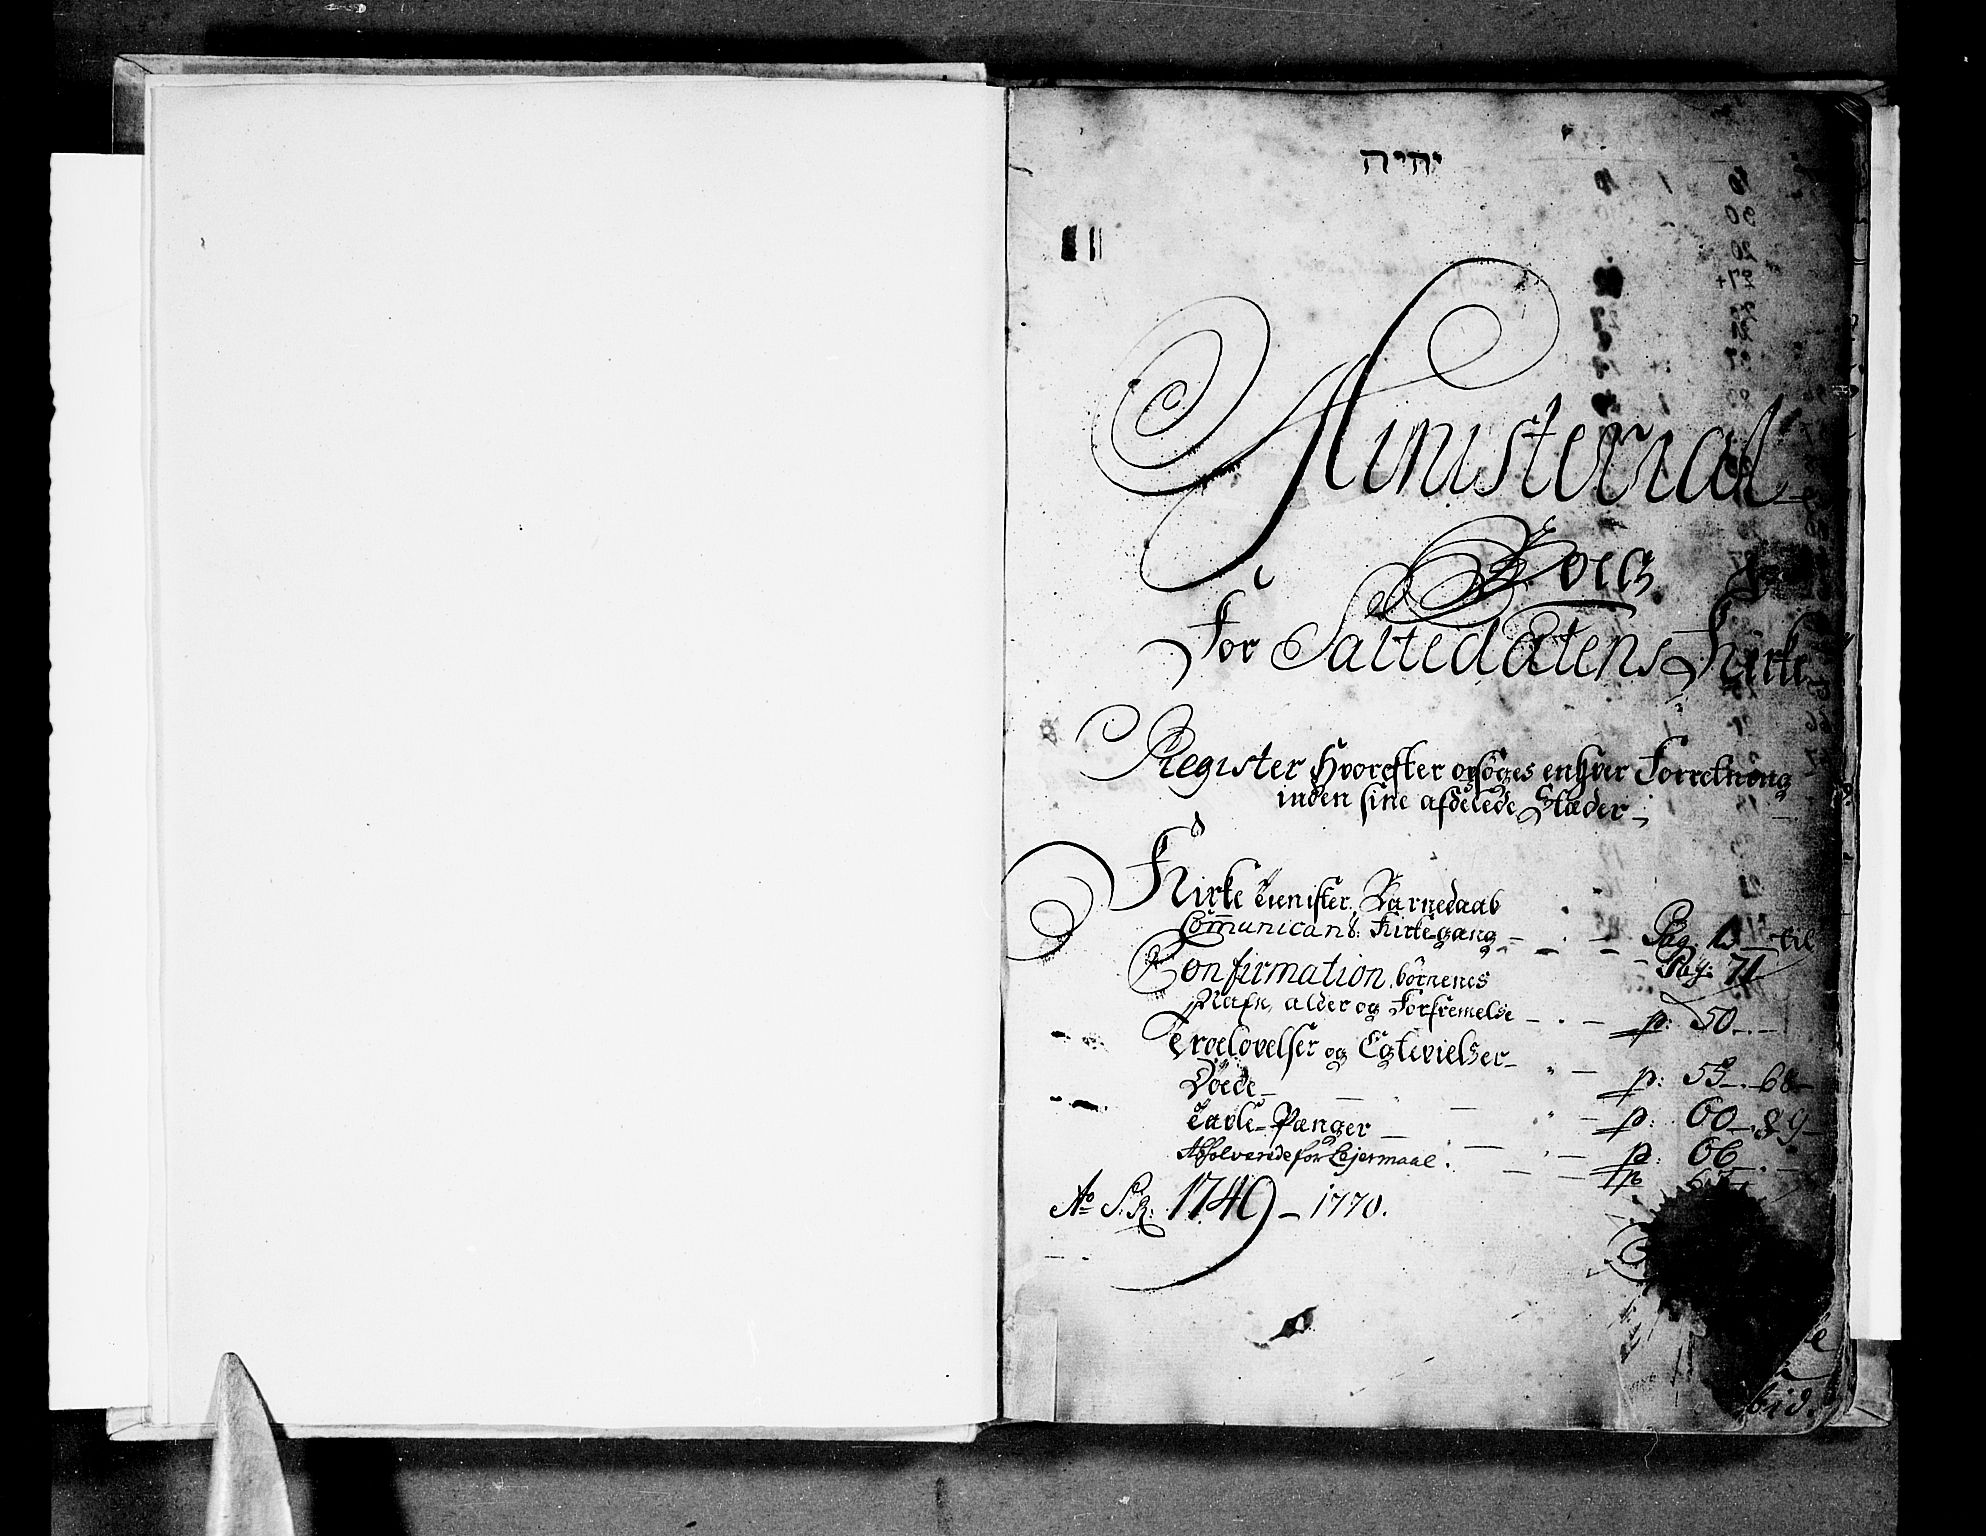 יהיה
Ministerial
Boeg
For Saltedalens Kirke
Register Hvorefter opsøges enhver Forretning
inden sine afdelede Stæder
Kirke Tienister, Barnedaab
Communicant: Kirkegang Pag: til
Pag: 71
Confirmation børnenes
Nafn, alder og Forfremelse p: 50
Troelovelser og Egtevielser p: 55
Døede p: 60 89
Tavle-Penger p: 66
Absolverede for Lejermaal p
Ao S: R: 1749 – 1770.
ibid.